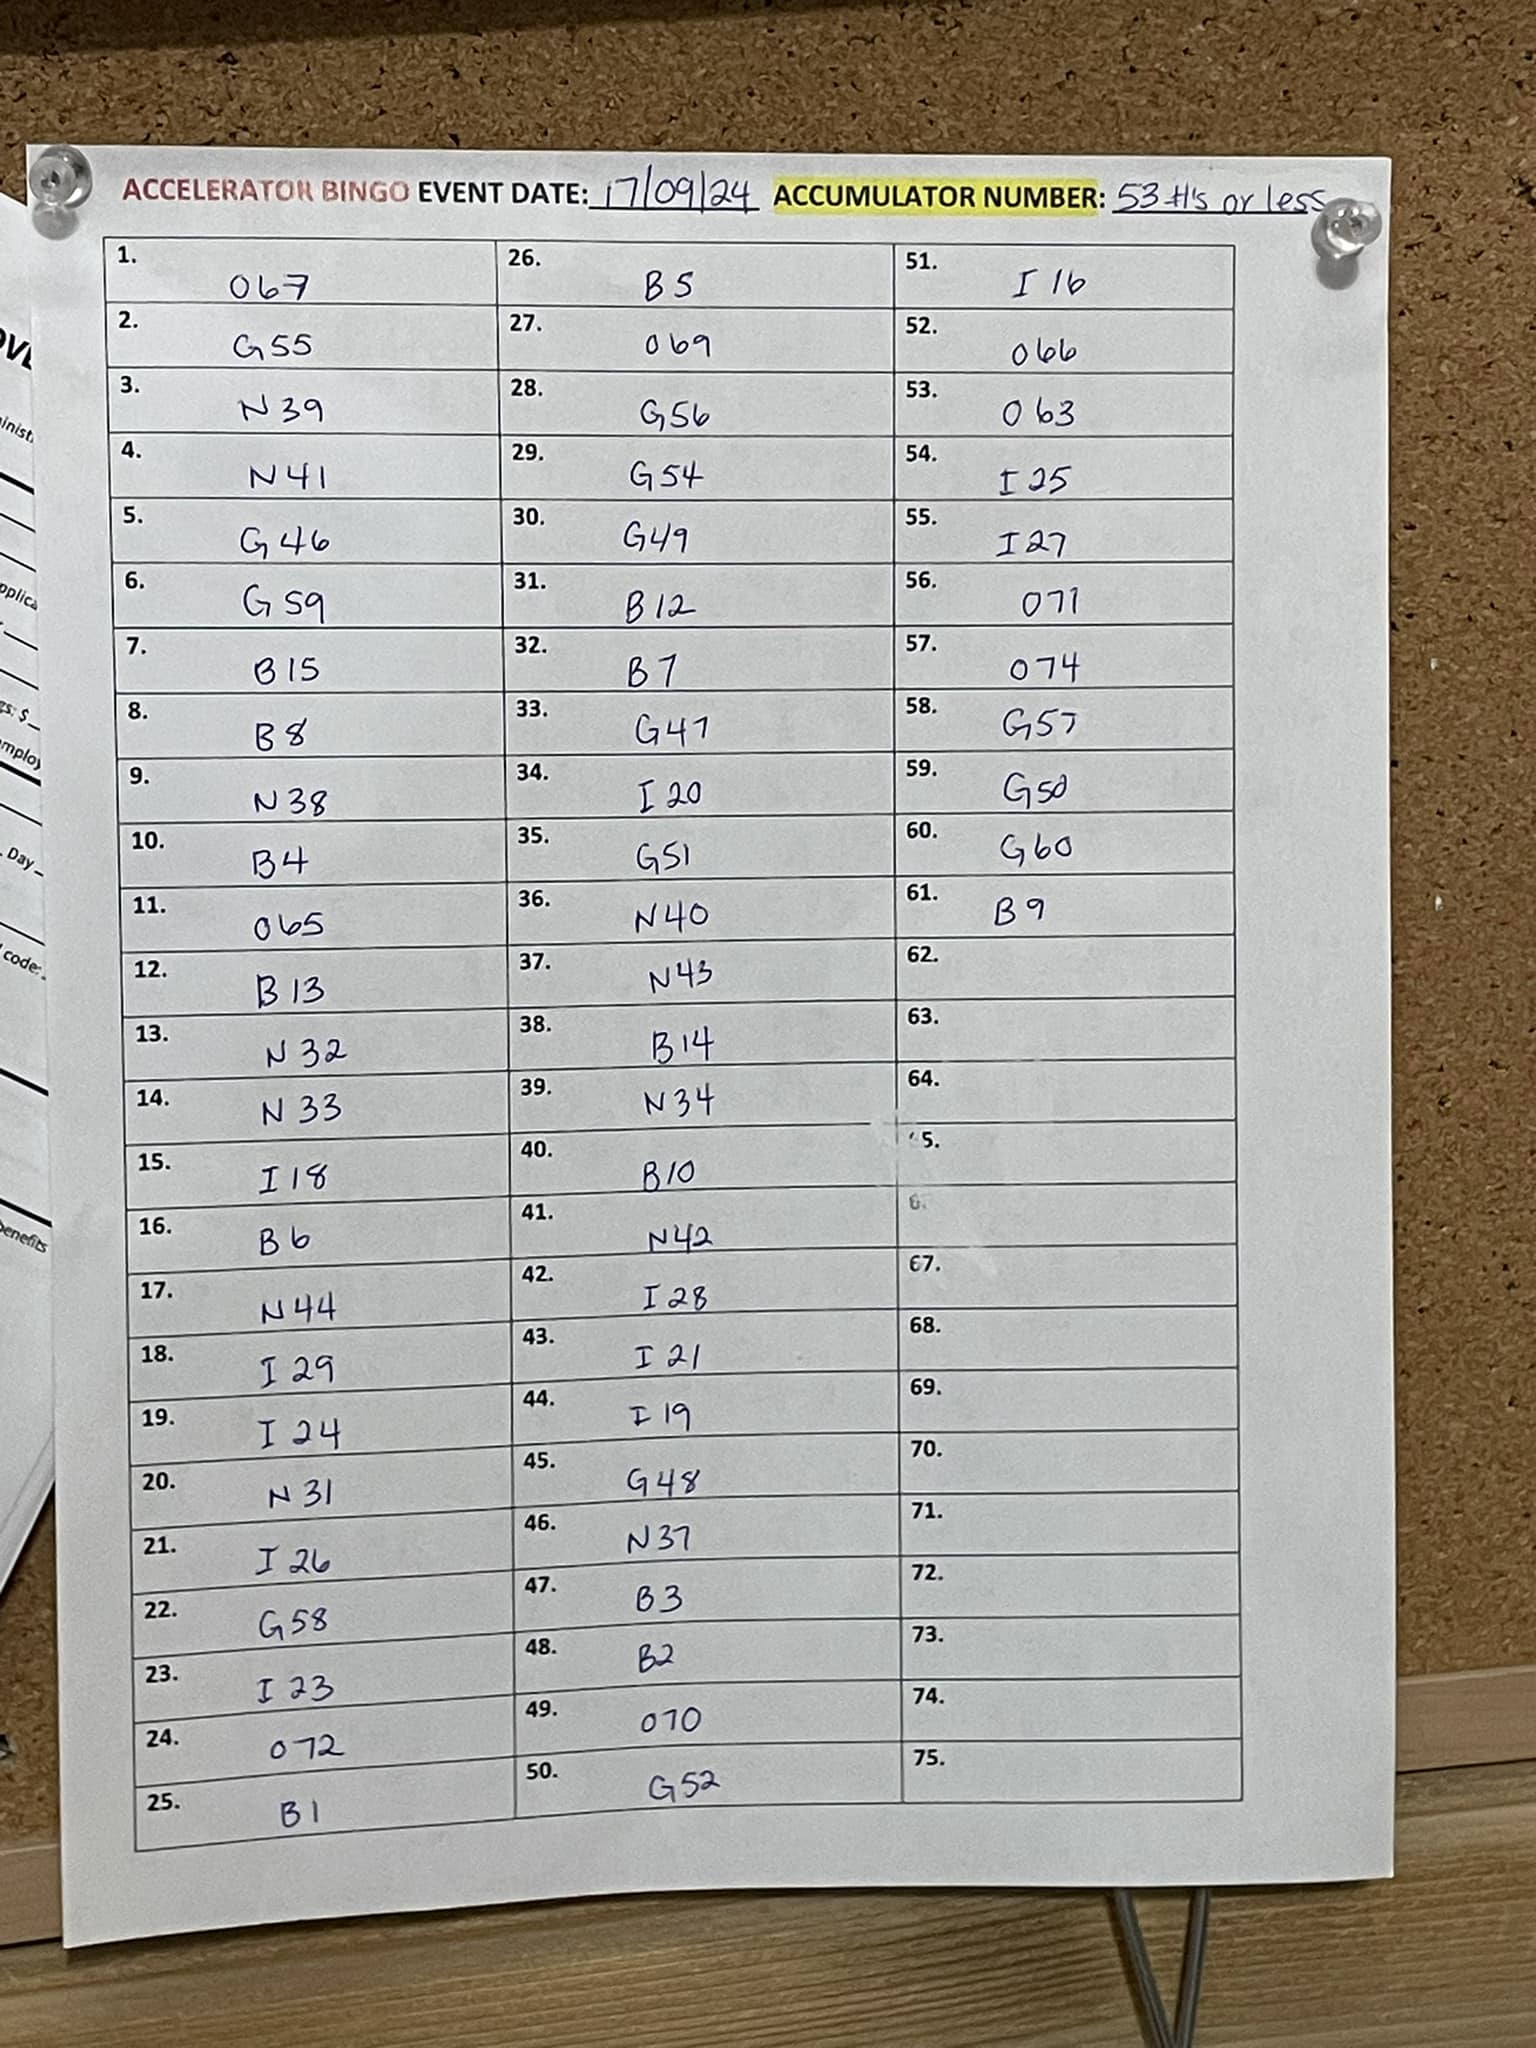 ACCELERATOR BINGO EVENT DATE: 17/09/24 ACCUMULATOR NUMBER: 53 #'s or less
1. O67
2. G55
3. N39
4. N41
5. G46
6. G59
7. B15
8. B8
9. N38
10. B4
11. O65
12. B13
13. N32
14. N33
15. I18
16. B6
17. N44
18. I29
19. I24
20. N31
21. I26
22. G58
23. I23
24. O72
25. B1
26. B5
27. O69
28. G56
29. G54
30. G49
31. B12
32. B7
33. G47
34. I20
35. G51
36. N40
37. N43
38. B14
39. N34
40. B10
41. N42
42. I28
43. I21
44. I19
45. G48
46. N37
47. B3
48. B2
49. O70
50. G52
51. I16
52. O66
53. O63
54. I25
55. I27
56. O71
57. O74
58. G57
59. G50
60. G60
61. B9
62.
63.
64.
5.
6.
67.
68.
69.
70.
71.
72.
73.
74.
75.
Day
code:
benefits